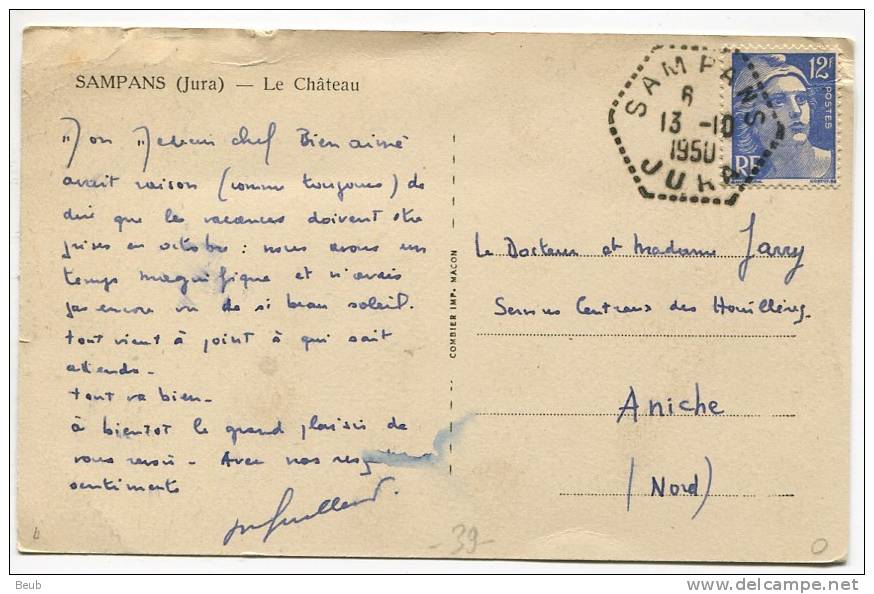 SAMPANS (Jura) — Le Château
Mon Médecin chef Bien aimé
avait raison (comme toujours) de
dire que les vacances doivent être
prises en octobre : nous avons un
temps magnifique et n'avais
pas encore vu de si beau soleil.
tout vient à point à qui sait
attendre -
tout va bien -
à bientôt le grand plaisir de
vous revoir - Avec nos
sentiments
COMBIER IMP. MACON
SAMPANS
6
13 -10
1950
JURA
12F
POSTES
RF
Le Docteur et Madame Jarry
Services Centraux des Houillères
Aniche
(Nord)
- 39 -
Beub
www.delcampe.net